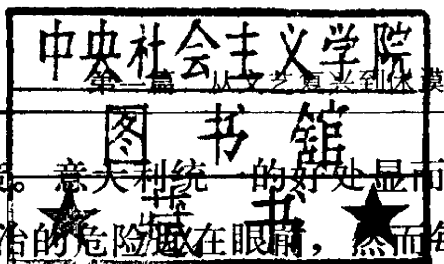 中央社会主义学院
第一篇 从文艺复兴到休谟
图书馆
意大利统一的好处显而
藏书
治的危险迫在眼前，然而